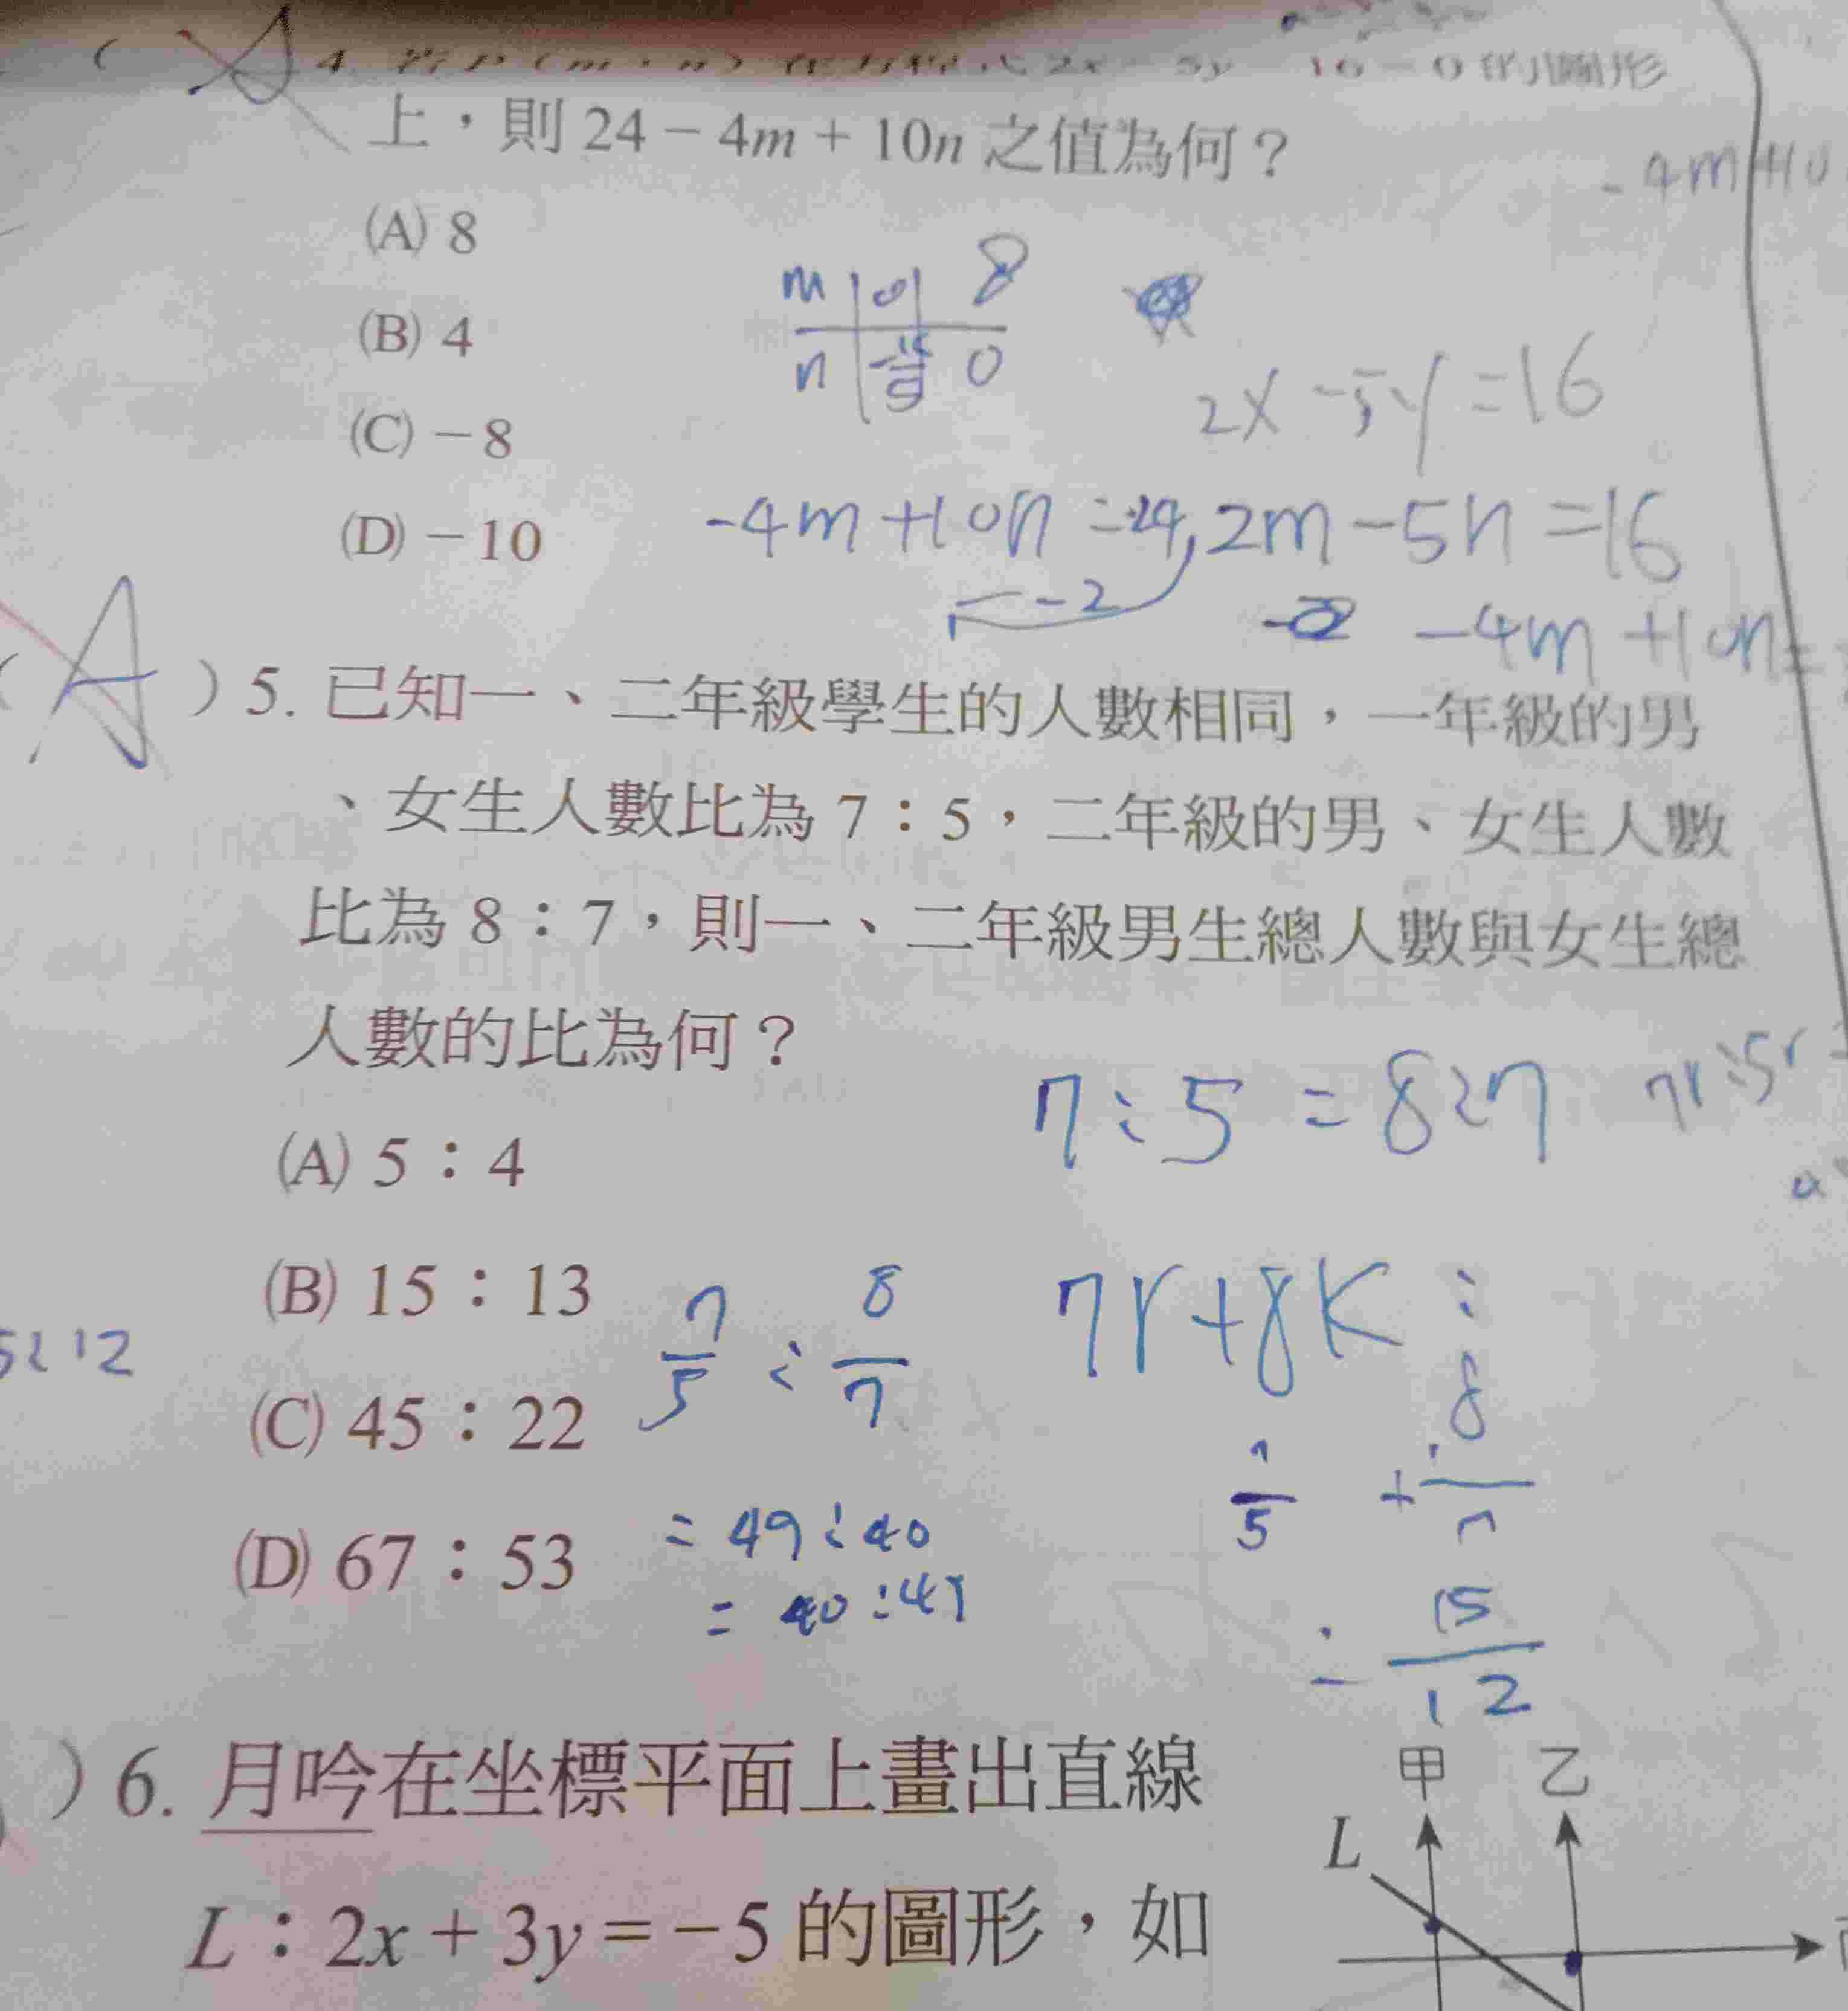 ( A 4. 若 P ( m , n ) 在方程式 2x - 5y - 16 = 0 的圖形
上，則 24 − 4m + 10n 之值為何？
- 4m + 10
(A) 8
m 0 8
(B) 4
n 0
2x - 5y = 16
(C) −8
(D) −10
-4m + 10n = -24, 2m - 5n = 16
-2
-4m + 10n =
( A ) 5. 已知一、二年級學生的人數相同，一年級的男
、女生人數比為 7：5，二年級的男、女生人數
比為 8：7，則一、二年級男生總人數與女生總
人數的比為何？
7 : 5 = 8 : 7 7r : 5r
(A) 5：4
(B) 15：13
7/5 : 8/7
7r + 8k :
5 : 12
(C) 45：22
7/5 + 8/7
(D) 67：53
= 49 : 40
= 40 : 49
= 15/12
) 6. 月吟在坐標平面上畫出直線
甲 乙
L
L：2x + 3y = −5 的圖形，如